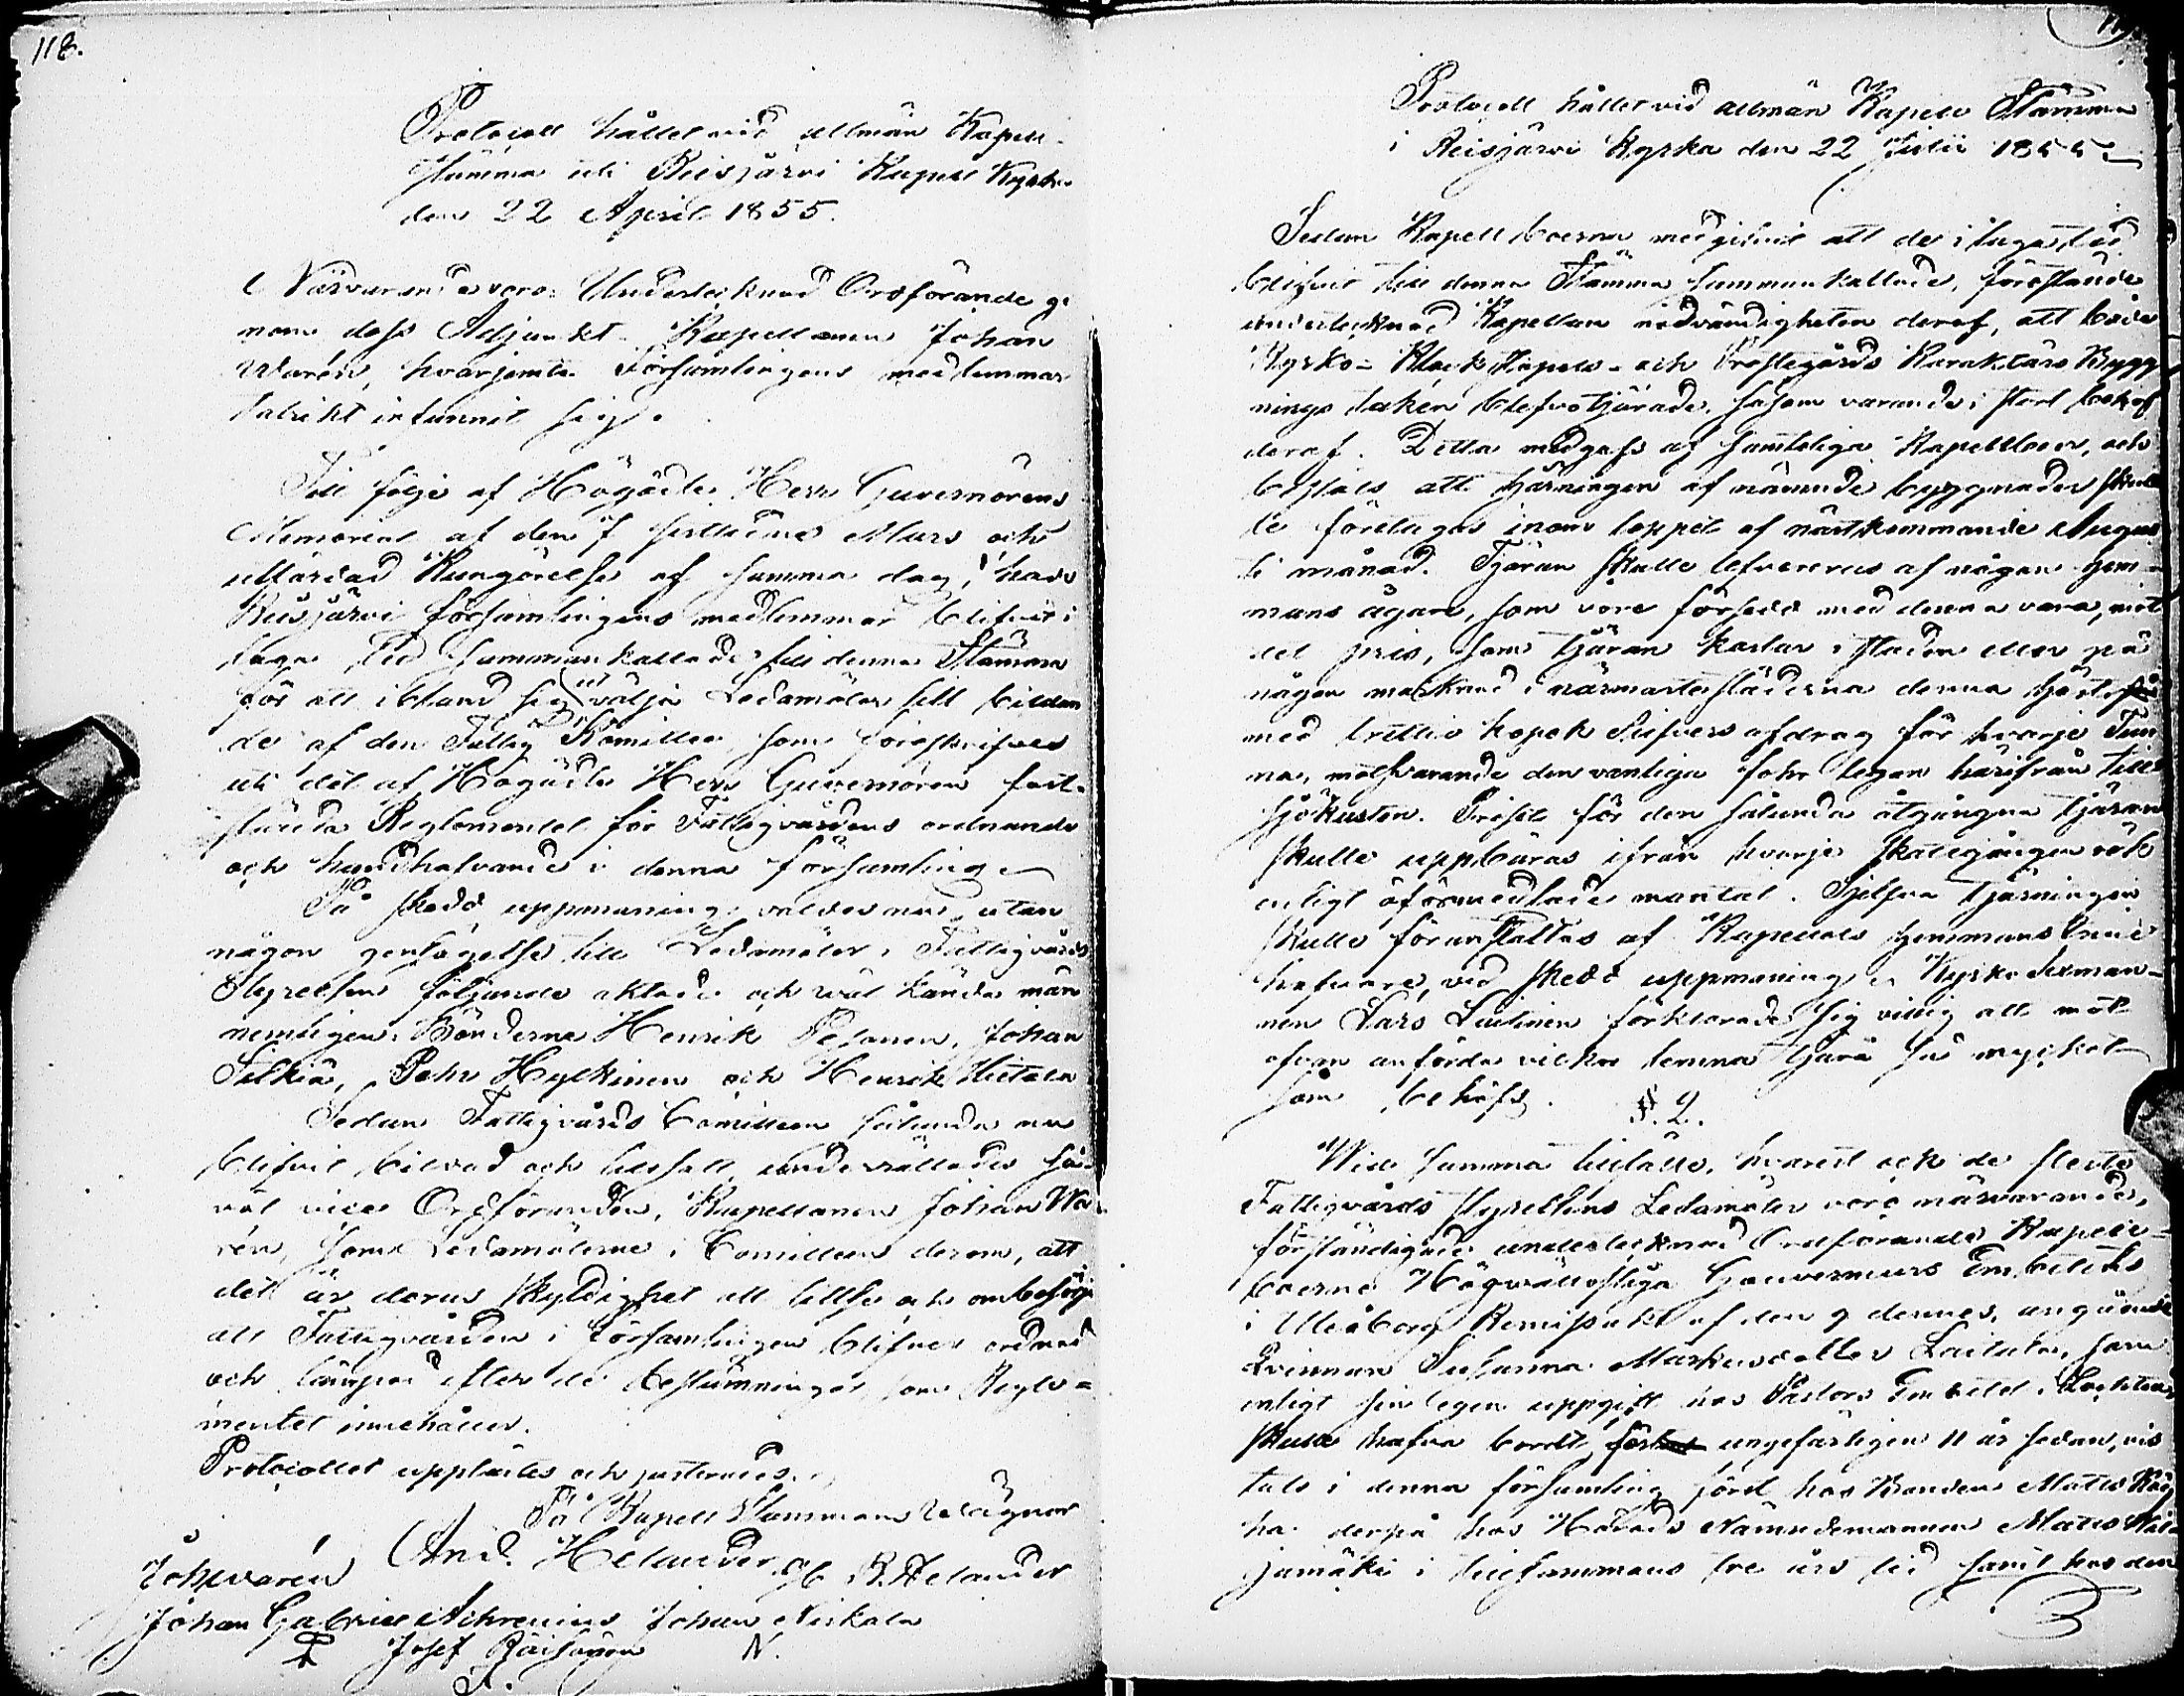 118.
Protocoll hållet vid allmän Kapell-
stämma uti Reisjärvi Kapell Kyrka
den 22 April 1855.
Närvarande voro: Undertecknad Ordförande ge
nom dess Adjunkt Kapellanen Johan
Warén, hvarjemte Församlingens medlemmar
talrikt infunnit sig.
Till följe af Högädle Herr Guvernörens
Memorial af den 7 sistledne Mars och
utfärdad Kungörelse af samma dag, hade
Reisjärvi församlingens medlemmar blifvit i
laga tid sammankallade till denna Stämma
för att ibland sig utvälja Ledamöter till bildan
de af den Fattig Komitten, som föreskrifves
uti det af Högädle Herr Guvernören fast-
stälda Reglementet för Fattigvårdens ordnande
och handhafvande i denna församling.
På skedd uppmaning valdes nu, utan
någon gensägelse till Ledamöter i Fattigvårds
Styrelsen följande aktade och väl kända män
nemligen: Bönderna Henrik Pesonen, Johan
Silkiä, Pehr Hyckinen och Henrik Hietala
Sedan Fattigvårds Comitteen sålunda nu
blifvit bildad och tillsatt underrättades så-
väl vice Ordföranden, Kapellanen Johan Wa-
rén, som Ledamöterne i Comitteen derom, att
det är deras skyldighet att tillse och ombesörja
att Fattigvården i Församlingen blifver ordnad
och lämpad efter de bestämningar som Regle-
mentet innehåller.
Protocollet upplästes och justerades.
På Kapell Stämmans vägnar
And. Helander
Joh. Warén G. R. Helander
Johan Gabriel Achrenius Johan Niskala
Josef Räisänen N.
Protocoll hållet vid allmän Kapell Stämma
i Reisjärvi Kyrka den 22 Julii 1855
Sedan Kapellboerna medgifvit att de i laga tid
blifvit till denna Stämma sammankallade, föreställde
undertecknad Kapellan nödvändigheten deraf, att både
Kyrko- Klock stapels- och Prestegårds Karaktärs Bygg
nings taken blefvo tjärade, såsom varande i stort behof
deraf. Detta medgafs af samteliga Kapellboer, och
beslöts att tjärningen af nämnde byggnader skul
le företagas inom loppet af nästkommande Augus
ti månad. Tjäran skulle lefvereras af någon hem-
mans ägare, som vore försedd med denna vara, mot
det pris, som tjäran kostar i staden eller på
någon marknad i närmaste städerna denna höst
med trettio kopek Silfvers afdrag för hvarje Tun
na, motsvarande den vanliga forlegan härifrån till
sjökusten. Priset för den sålunda åtgångna tjäran
skulle uppbäras ifrån hvarje skattegången rök
enligt oförmedlade mantal. Sjelfva tjärningen
skulle föranstaltas af Kapellets Hemmans Inne
hafvare, vid skedd uppmaning. Kyrko Sexman-
nen Lars Luotinen förklarade sig villig att mot
ofvan anförda vilkor lemna tjära så mycket
som behöfs.
§. 2.
Wid samma tillfälle, hvarest ock de fleste
Fattigvårds styrelsens Ledamöter voro närvarande,
förständigade undertecknad Ordförande Kapell-
boerne Högvällofliga Gouverneurs Embetets
i Uleåborg Remissakt af den 9 dennes, angående
Qvinnan Susanna Markusdotter Laitala, som
enligt sin egen uppgift hos Pastors Embetet i Lochteå
skulle hafva bordt ungefärligen 11 år sedan, vis
tats i denna församling först hos Bonden Matts
ha derpå hos Härads Nämndemannen Matts
jamäki i tillsammans tre års tid samt hos den